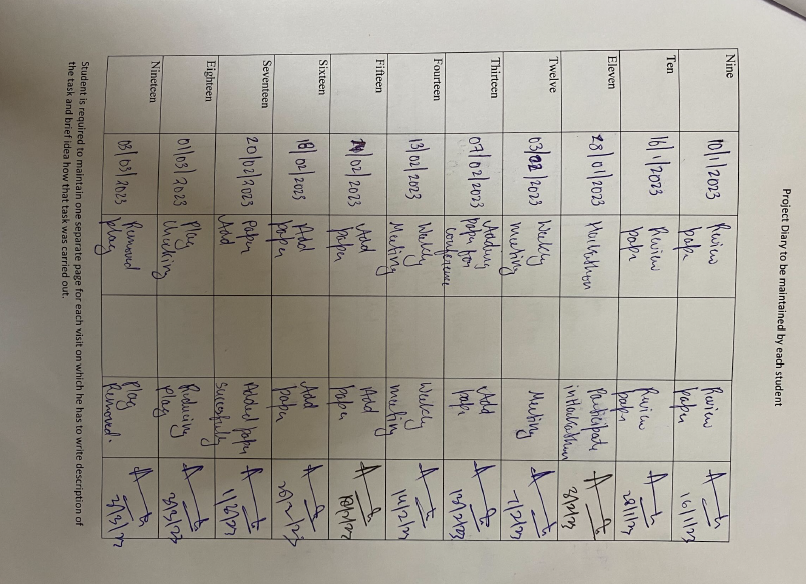 Project Diary to be maintained by each student
Nine 10/1/2023 Review paper Review paper 16/1/23
Ten 16/1/2023 Review paper Review paper 28/1/23
Eleven 28/01/2023 Hackathon Participate in Hackathon 3/2/23
Twelve 03/02/2023 Weekly meeting Meeting 7/2/23
Thirteen 07/02/2023 Adding paper for conference Add paper 13/2/23
Fourteen 13/02/2023 Weekly Meeting Weekly meeting 14/2/23
Fifteen /02/2023 Add paper Add paper
Sixteen 18/02/2023 Add paper Add paper 20/2/23
Seventeen 20/02/2023 Paper Add Added paper Sucessfully
Eighteen 01/03/2023 Plag Checking Reducing Plag 3/3/23
Nineteen 03/03/2023 Removed plag Plag Removed.
Student is required to maintain one separate page for each visit on which he has to write description of
the task and brief idea how that task was carried out.